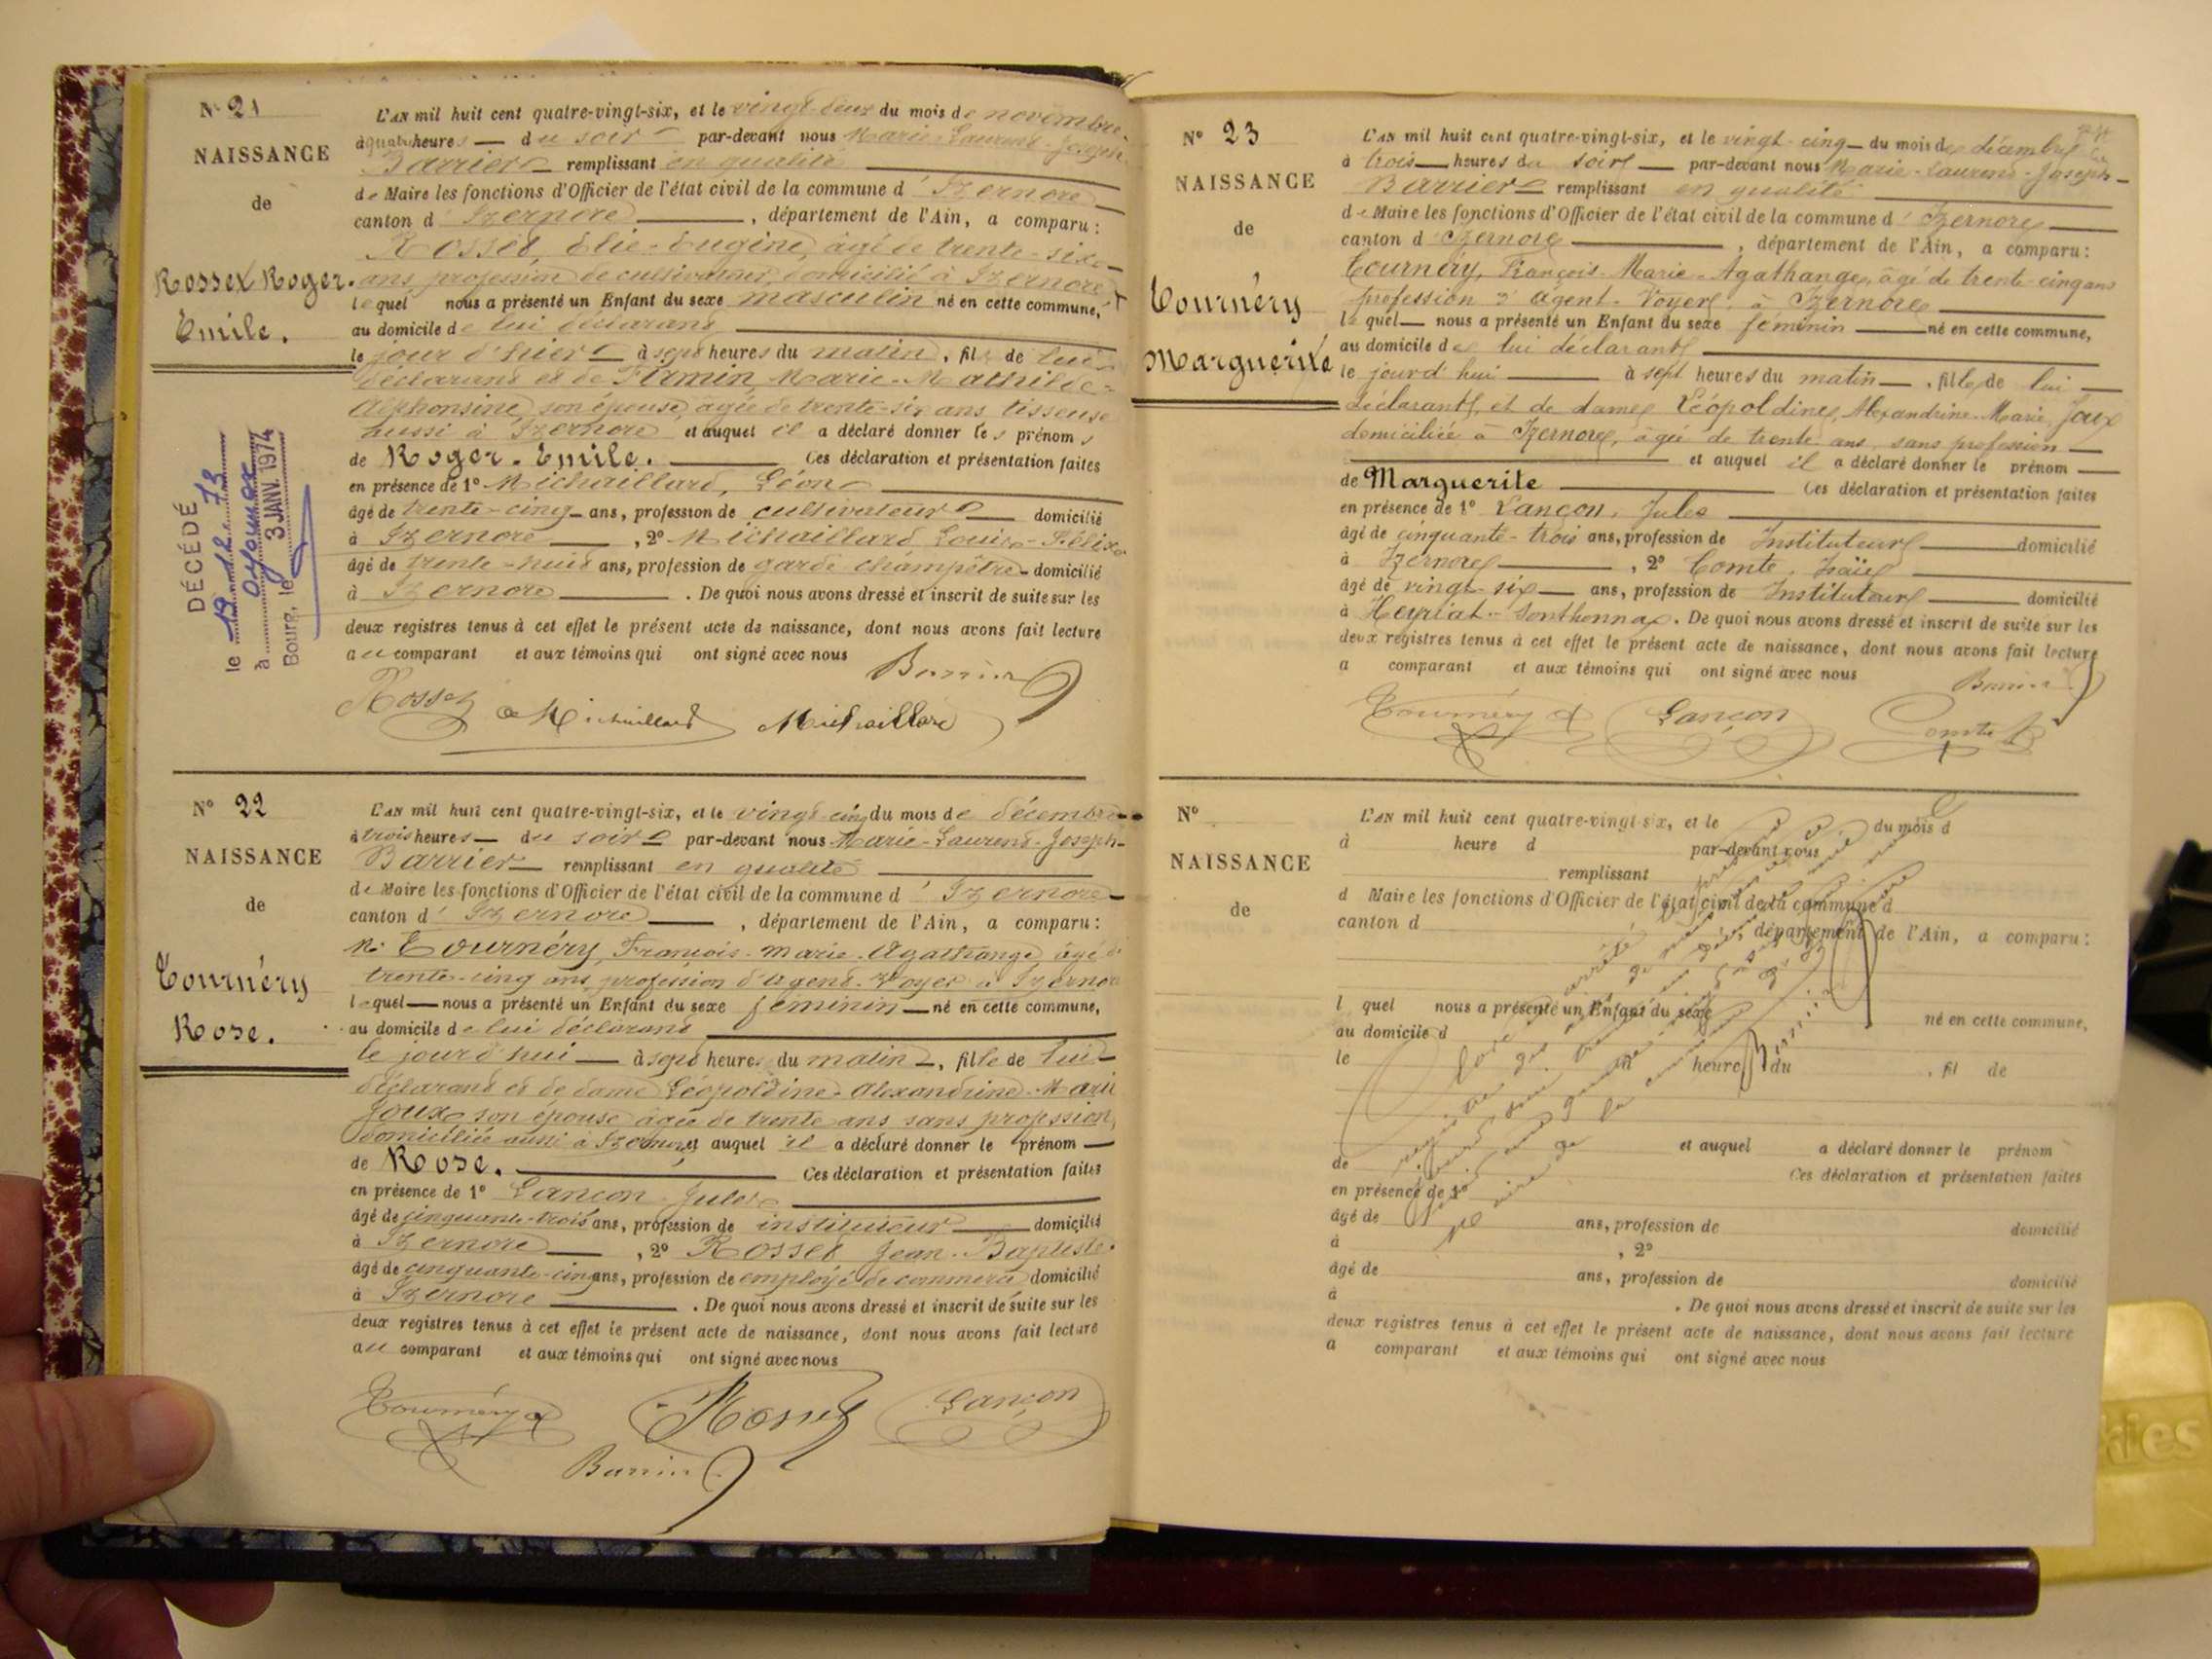 N° 21
NAISSANCE
de
Rosset Roger.
Emile.
DÉCÉDÉ
le 19.12.73
à Oyonnax
Bourg, le 3 JANV. 1974
L'AN mil huit cent quatre-vingt-six, et le vingt-deux du mois de novembre
à quatre heures — du soir par-devant nous Marie-Laurent-Joseph
Barrier remplissant en qualité
de Maire les fonctions d'Officier de l'état civil de la commune d'Izernore
canton d'Izernore, département de l'Ain, a comparu :
Rosset, Elie-Eugène, âgé de trente-six
ans profession de cultivateur, domicilié à Izernore
lequel nous a présenté un Enfant du sexe masculin né en cette commune,
au domicile de lui déclarant
le jour d'hier à sept heures du matin, fils de lui
déclarant et de Firmin, Marie-Mathilde-
Alphonsine, son épouse, âgée de trente-six ans tisseuse
aussi à Izernore et auquel il a déclaré donner les prénoms
de Roger-Emile. Ces déclaration et présentation faites
en présence de 1° Michaillard, Léon
âgé de trente-cinq ans, profession de cultivateur domicilié
à Izernore, 2° Michaillard Louis-Félix
âgé de trente-huit ans, profession de garde champêtre domicilié
à Izernore. De quoi nous avons dressé et inscrit de suite sur les
deux registres tenus à cet effet le présent acte de naissance, dont nous avons fait lecture
au comparant et aux témoins qui ont signé avec nous
Barrier
Rosset Michaillard Michaillard
N° 22
NAISSANCE
de
Tournéry
Rose.
L'AN mil huit cent quatre-vingt-six, et le vingt cinq du mois de décembre
à trois heures — du soir par-devant nous Marie-Laurent-Joseph-
Barrier remplissant en qualité
de Maire les fonctions d'Officier de l'état civil de la commune d'Izernore
canton d'Izernore, département de l'Ain, a comparu :
Mr Tournéry, François-Marie-Agathange âgé de
trente-cinq ans profession d'agent-Voyer à Izernore
lequel — nous a présenté un Enfant du sexe féminin — né en cette commune,
au domicile de lui déclarant
le jourd'hui — à sept heures du matin, fille de lui
déclarant et de dame Léopoldine-Alexandrine-Marie
Joux son épouse âgée de trente ans sans profession,
domiciliée aussi à Izernore et auquel il a déclaré donner le prénom —
de Rose. Ces déclaration et présentation faites
en présence de 1° Lançon Jules
âgé de cinquante-trois ans, profession de instituteur domicilié
à Izernore, 2° Rosset Jean-Baptiste
âgé de cinquante-cinq ans, profession de employé de commerce domicilié
à Izernore. De quoi nous avons dressé et inscrit de suite sur les
deux registres tenus à cet effet le présent acte de naissance, dont nous avons fait lecture
au comparant et aux témoins qui ont signé avec nous
Tournéry Rosset Lançon
Barrier
N° 23
NAISSANCE
de
Tournéry
Marguerite
L'AN mil huit cent quatre-vingt-six, et le vingt-cinq — du mois de décembre
à trois — heures du soir — par-devant nous Marie-Laurent-Joseph-
Barrier remplissant en qualité
de Maire les fonctions d'Officier de l'état civil de la commune d'Izernore
canton d'Izernore, département de l'Ain, a comparu :
Tournéry, François-Marie-Agathange, âgé de trente-cinq ans
profession d'agent-Voyer, à Izernore
lequel — nous a présenté un Enfant du sexe féminin — né en cette commune,
au domicile de lui déclarant
le jourd'hui — à sept heures du matin —, fille de lui —
déclarant, et de dame Léopoldine, Alexandrine-Marie, Joux
domiciliée à Izernore, âgée de trente ans, sans profession —
et auquel il a déclaré donner le prénom —
de Marguerite Ces déclaration et présentation faites
en présence de 1° Lançon, Jules
âgé de cinquante-trois ans, profession de Instituteur domicilié
à Izernore, 2° Comte,
âgé de vingt-six — ans, profession de Instituteur domicilié
à Heyriat-Sonthonnax. De quoi nous avons dressé et inscrit de suite sur les
deux registres tenus à cet effet le présent acte de naissance, dont nous avons fait lecture
a comparant et aux témoins qui ont signé avec nous
Barrier
Tournéry Lançon Comte
N°
NAISSANCE
de
L'AN mil huit cent quatre-vingt-six, et le du mois d
à heure d par-devant nous
remplissant
d Maire les fonctions d'Officier de l'état civil de la commune d
canton d , département de l'Ain, a comparu :
l quel nous a présenté un Enfant du sexe né en cette commune,
au domicile d
le à heure du , fil de
et auquel a déclaré donner le prénom
de Ces déclaration et présentation faites
en présence de 1°
âgé de ans, profession de domicilié
à , 2°
âgé de ans, profession de domicilié
à . De quoi nous avons dressé et inscrit de suite sur les
deux registres tenus à cet effet le présent acte de naissance, dont nous avons fait lecture
a comparant et aux témoins qui ont signé avec nous
Barrier
kies